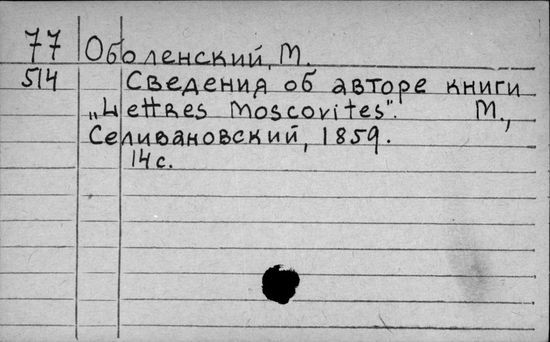 77 Оболенский, М.
514 Сведения об авторе книги
„Lettres Moscovites". М.,
Селивановский, 1859.
14 с.